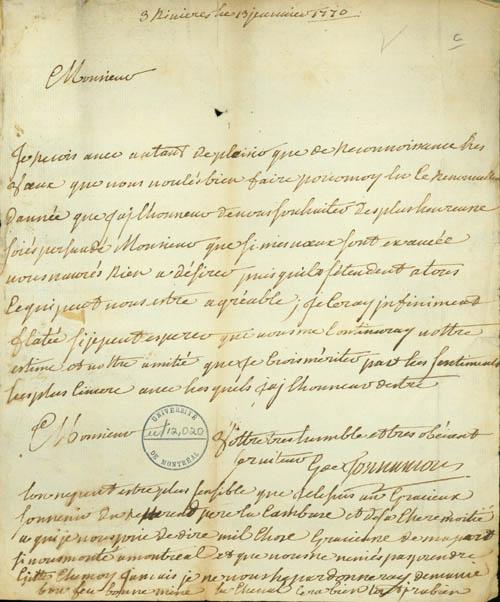 3 Rivieres le 13 janvier 1770
C
Monsieur
Je recois avec autant de plaisir que de Reconnoissance les
veaux que vous voulés bien faire pour moy en ce Renouvellement
dannée que jaj lhonneur de vous souhaiter des plus heureuse
soiés persuadé Monsieur que si mes vœux sont exaucée
vous naurés Rien a désirer puis quils sétendent a tous
ce qui peut vous estre agreable; je seray jnfiniment
flatée si je peut esperer que vous me continuray vottre
estime et vottre amitié que je crois mériter par les sentiments
les plus sincere avec les quels jaj lhonneur destre
Monsieur
UNIVERSITÉ
DE MONTRÉAL
12,020
Vottre tres humble et tres obéissant
serviteur
lon ne peut estre plus sensible que je le suis au Gracieux
souvenir du Reverend pere la Cambare et de sa chere moitié
a qui je vous prie de dire mil chose Gracieuse de ma part
si vous monté a montreal et que vous me veniés pas prendre
Gitte Ches moy jamais je ne vous le pardonneray de mavie
bon feu bonne mine le cheval sera bien